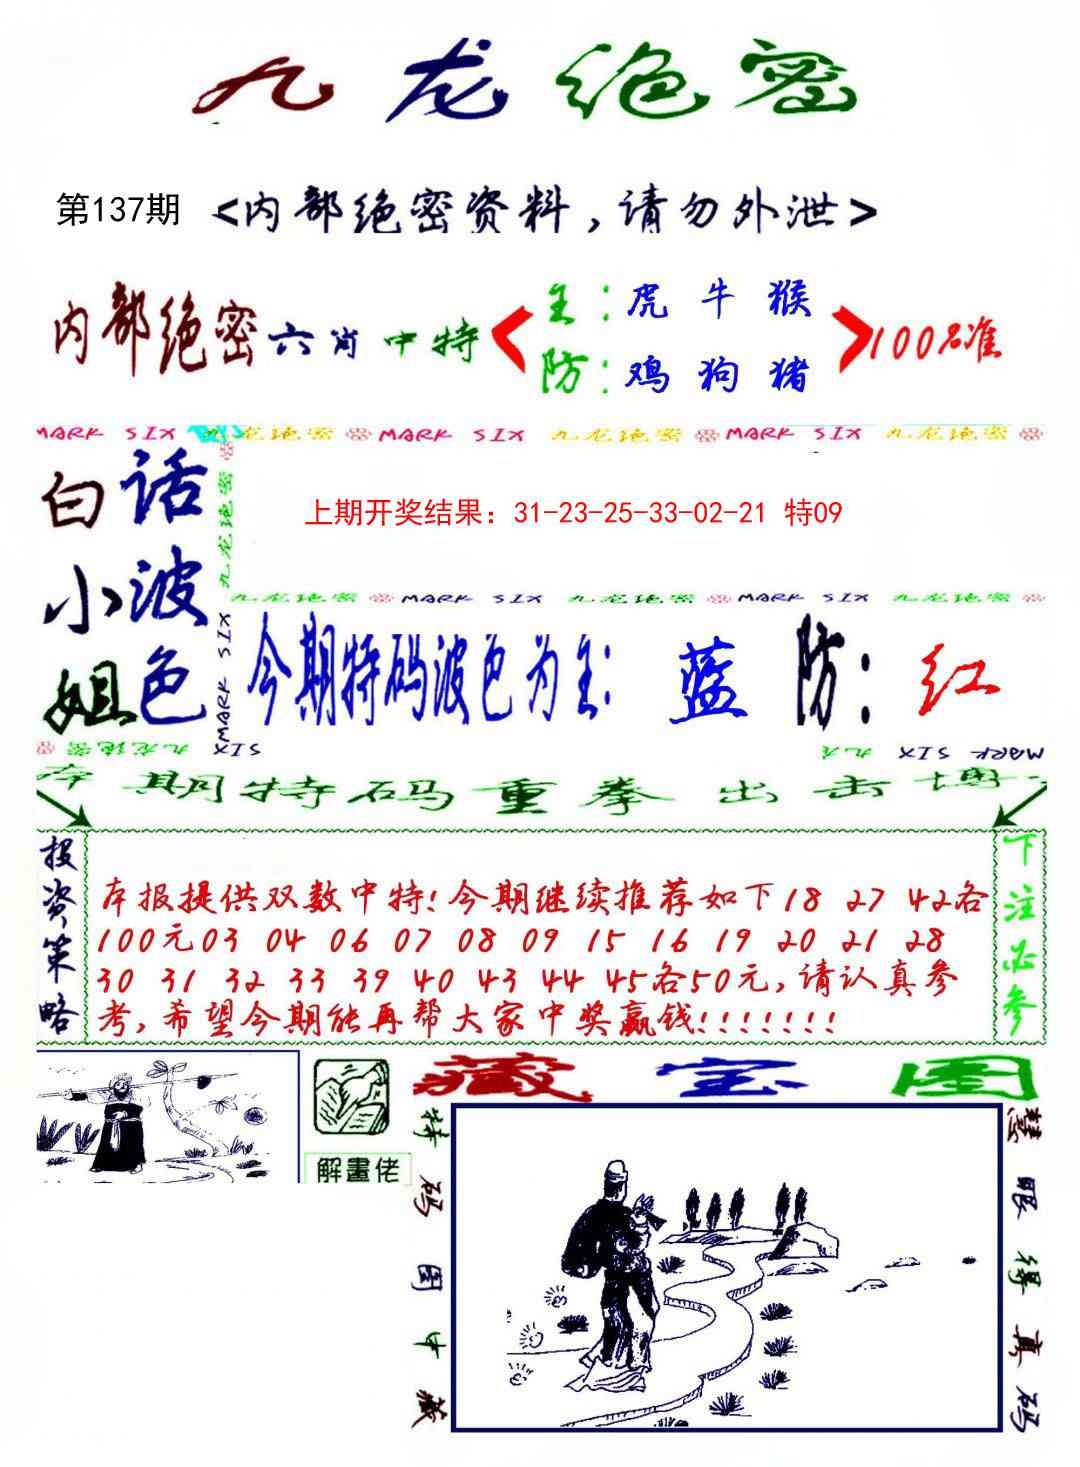 九龙绝密
第137期 <内部绝密资料,请勿外泄>
内部绝密六肖中特
主:虎 牛 猴
防:鸡 狗 猪
100%准
MARK SIX 九龙绝密 MARK SIX 九龙绝密 MARK SIX 九龙绝密
白话
小波
姐色
九龙绝密
MARK SIX
上期开奖结果：31-23-25-33-02-21 特09
九龙绝密 MARK SIX 九龙绝密 MARK SIX 九龙绝密
今期特码波色为主: 蓝 防: 红
九龙绝密 MARK SIX
九龙 MARK SIX
本期特码重拳出击博
投资策略
本报提供双数中特!今期继续推荐如下18 27 42各
100元03 04 06 07 08 09 15 16 19 20 21 28
30 31 32 33 39 40 43 44 45各50元,请认真参
考,希望今期能再帮大家中奖赢钱!!!!!!!
下注必参
解畫佬
藏宝图
特码图中藏
慧眼得真码